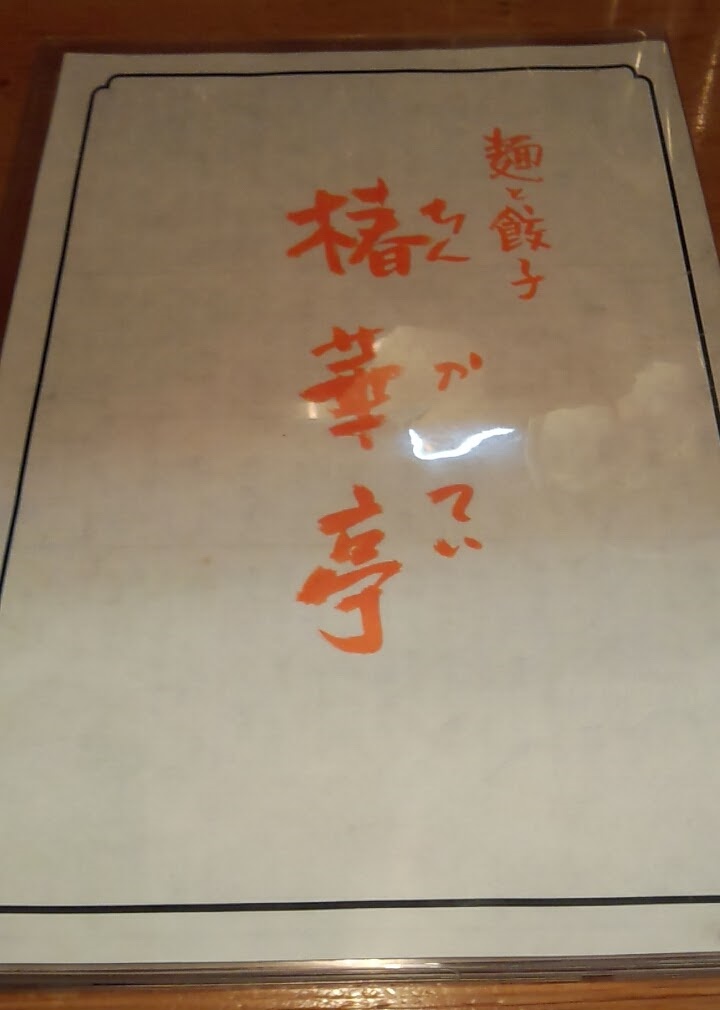 麺と餃子
ちんかてい
椿華亭